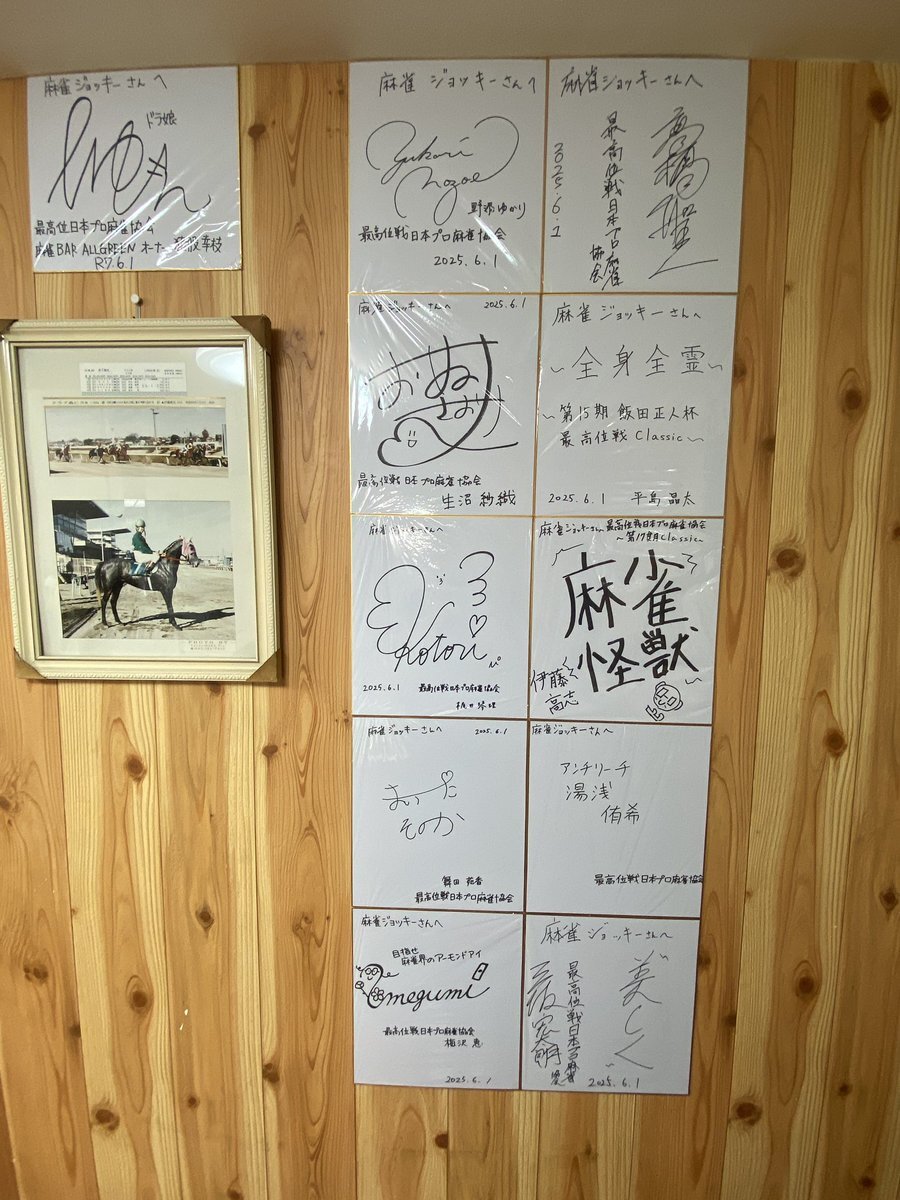 麻雀ジョッキーさんへ
ドラ娘
最高位日本プロ麻雀協会
麻雀BAR ALLGREEN オーナー 猪股幸枝
R7.6.1
麻雀 ジョッキーさんへ
Yukari
Nozoe
野添ゆかり
最高位戦日本プロ麻雀協会
2025.6.1
麻雀ジョッキーさんへ
最高位戦日本プロ麻雀
協会
2025.6.1
麻雀ジョッキーさんへ
2025.6.1
最高位戦日本プロ麻雀協会
生沼紗織
麻雀ジョッキーさんへ
~全身全霊~
~第15期 飯田正人杯
最高位戦 Classic~
2025.6.1 平島晶太
麻雀ジョッキーさんへ
Kotori
2025.6.1 最高位戦日本プロ麻雀協会
麻雀ジョッキーさんへ 最高位戦日本プロ麻雀協会
~第17期 Classic~
麻雀
怪獣
伊藤
高志
麻雀ジョッキーさんへ
2025.6.1
そのか
舞田 花香
最高位戦日本プロ麻雀協会
麻雀ジョッキーさんへ
アンチリーチ
湯浅
侑希
最高位戦日本プロ麻雀協会
麻雀ジョッキーさんへ
目指せ
麻雀界のアーモンドアイ
megumi
最高位戦日本プロ麻雀協会
梅沢 恵
2025.6.1
麻雀 ジョッキーさんへ
最高位戦日本プロ麻雀
2025.6.1